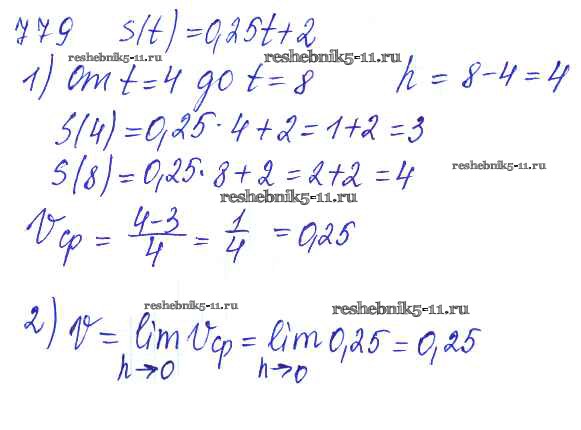 779 S(t)=0,25t+2
reshebnik5-11.ru reshebnik5-11.ru
1) от t=4 до t=8 h = 8-4=4
S(4)=0,25·4+2=1+2=3
S(8)=0,25·8+2=2+2=4 reshebnik5-11.ru
reshebnik5-11.ru
Vср = 4-3/4 = 1/4 = 0,25
reshebnik5-11.ru reshebnik5-11.ru
2) V = lim Vср = lim 0,25 = 0,25
h→0 h→0